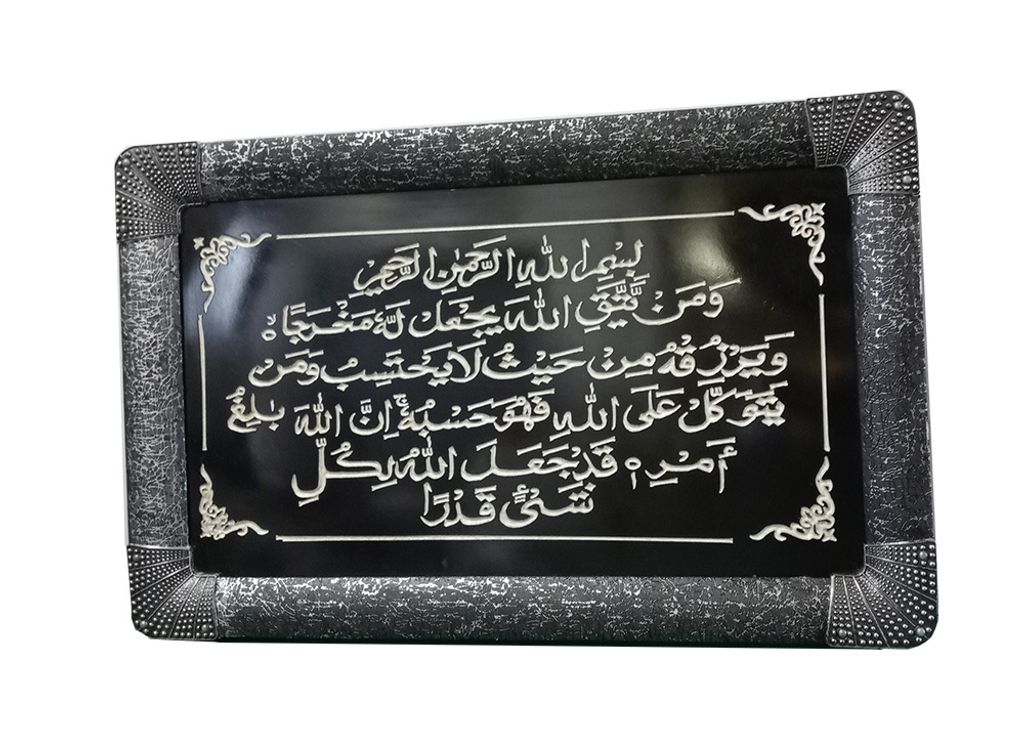 بِسْمِ اللهِ الرَّحْمٰنِ الرَّحِيْمِ
وَمَنْ يَّتَّقِ اللهَ يَجْعَلْ لَّهٗ مَخْرَجًا ۙ
وَيَرْزُقْهُ مِنْ حَيْثُ لَا يَحْتَسِبُ وَمَنْ
يَّتَوَكَّلْ عَلَى اللهِ فَهُوَ حَسْبُهٗ ۚ اِنَّ اللهَ بٰلِغُ
أَمْرِهٖ قَدْ جَعَلَ اللهُ لِكُلِّ
شَىْءٍ قَدْرًا